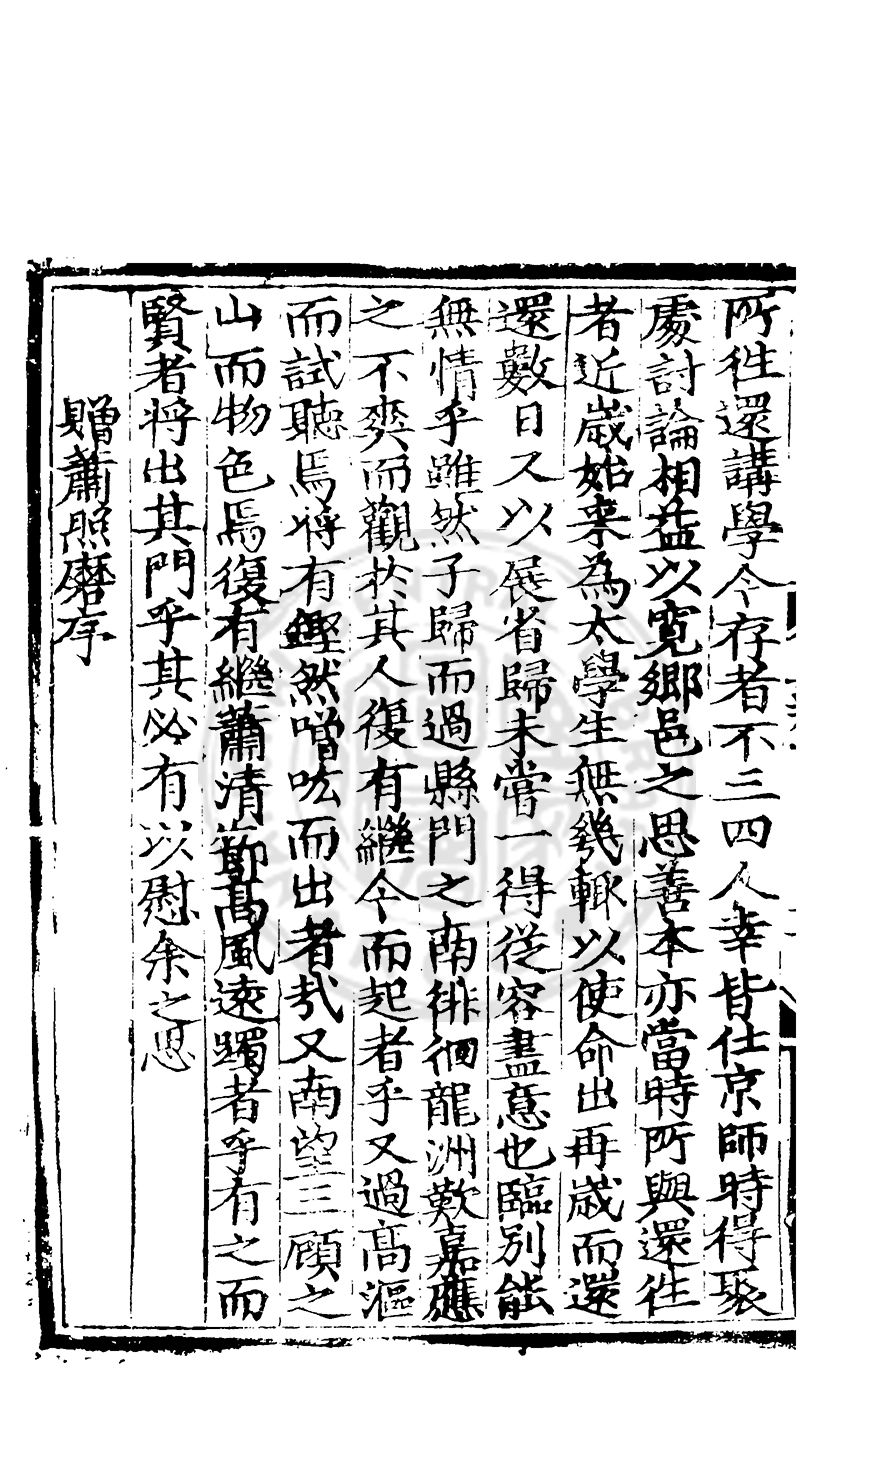 所徃還講學今存者不三四人幸皆仕京師時得聚
處討論相益以寬鄉邑之思善本亦當時所與還徃
者近歲始来為太學生無幾輒以使命出再歲而還
還數日又以展省歸未嘗一得從容盡意也臨別能
無情乎雖然子歸而過縣門之南徘徊龍洲歎嘉應
之不爽而觀於其人復有繼今而起者乎又過高漚
而試聽焉將有鏗然噌吰而出者㢤又南望三顧之
山而物色焉復有繼蕭清節髙風遠躅者乎有之而
賢者將出其門乎其必有以慰余之思
贈蕭照磨序